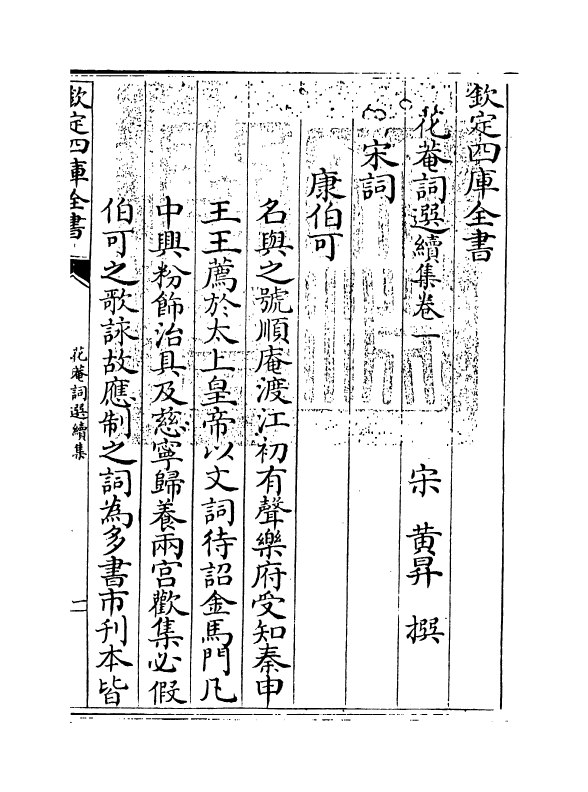 欽定四庫全書
花菴詞選續集卷一
宋 黄昇 撰
宋詞
康伯可
名與之號順庵渡江初有聲樂府受知秦申
王王薦於太上皇帝以文詞待詔金馬門凡
中興粉飾治具及慈寧歸養兩宫歡集必假
伯可之歌詠故應制之詞為多書市刊本皆
欽定四庫全書
花菴詞選續集
一